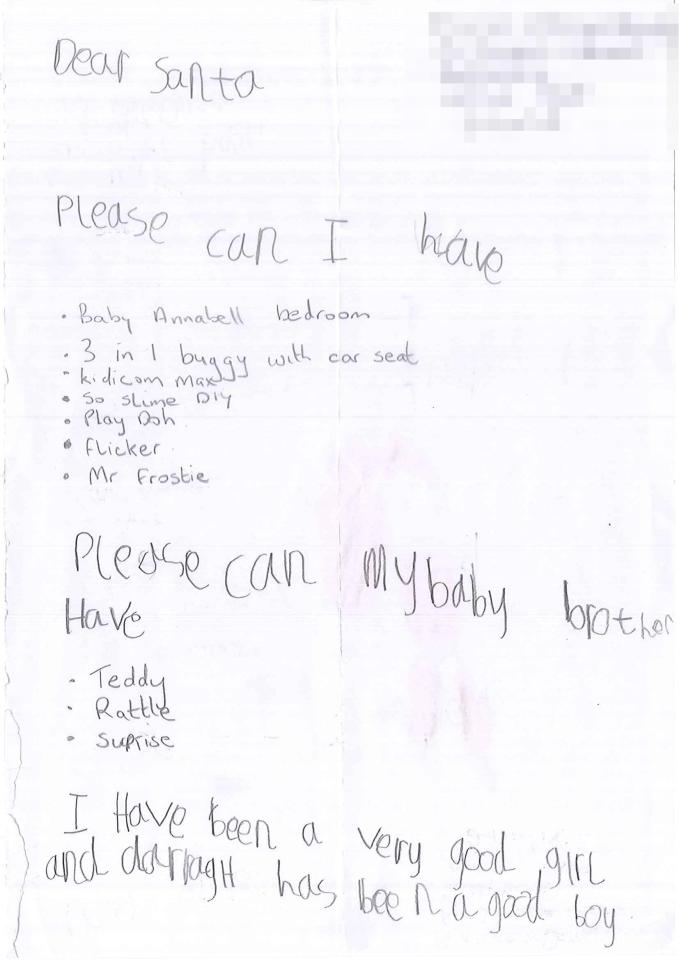 Dear Santa
Please can I have
• Baby Annabell bedroom
• 3 in 1 buggy with car seat
• kidicom max
• So slime DIY
• Play Doh
• flicker
• Mr Frostie
Please can my baby brother
Have
• Teddy
• Rattle
• Suprise
I Have been a very good girl
and darragh has been a good boy.